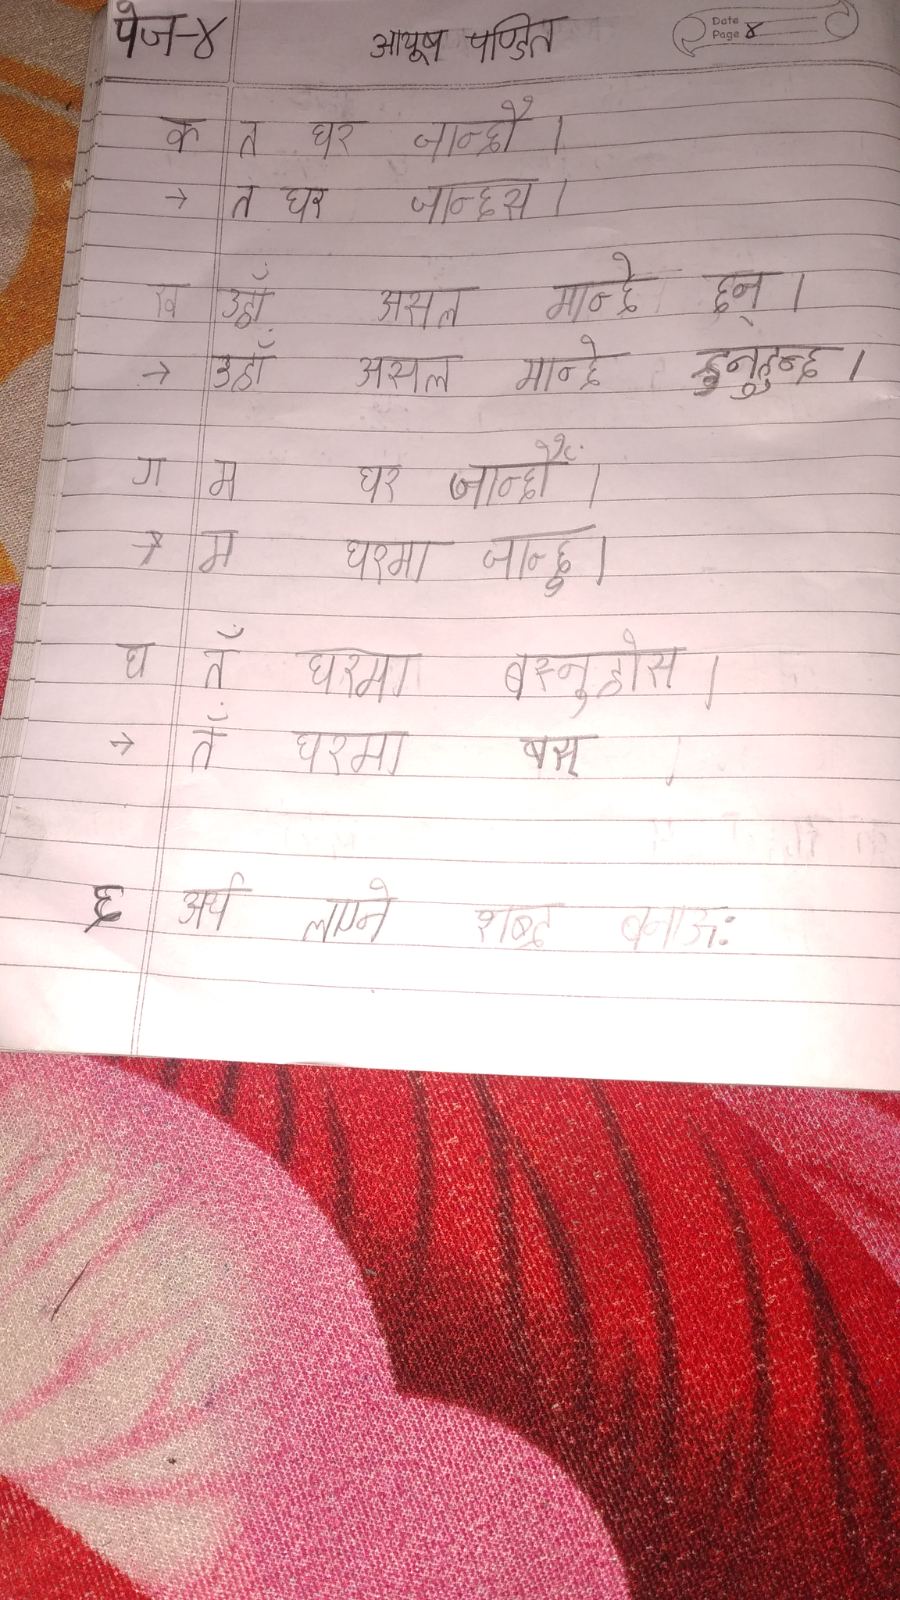 पेज-४ आयूष पण्डित Date Page ४
क त घर जान्छौ ।
→ त घर जान्छस ।
ख उहाँ असल मान्छे छन् ।
→ उहाँ असल मान्छे हुनुहुन्छ ।
ग म घर जान्छौँ ।
→ म घरमा जान्छु ।
घ तँ घरमा बस्नुहोस ।
→ तँ घरमा बस् ।
६ अर्थ लाग्ने शब्द बनाऊः